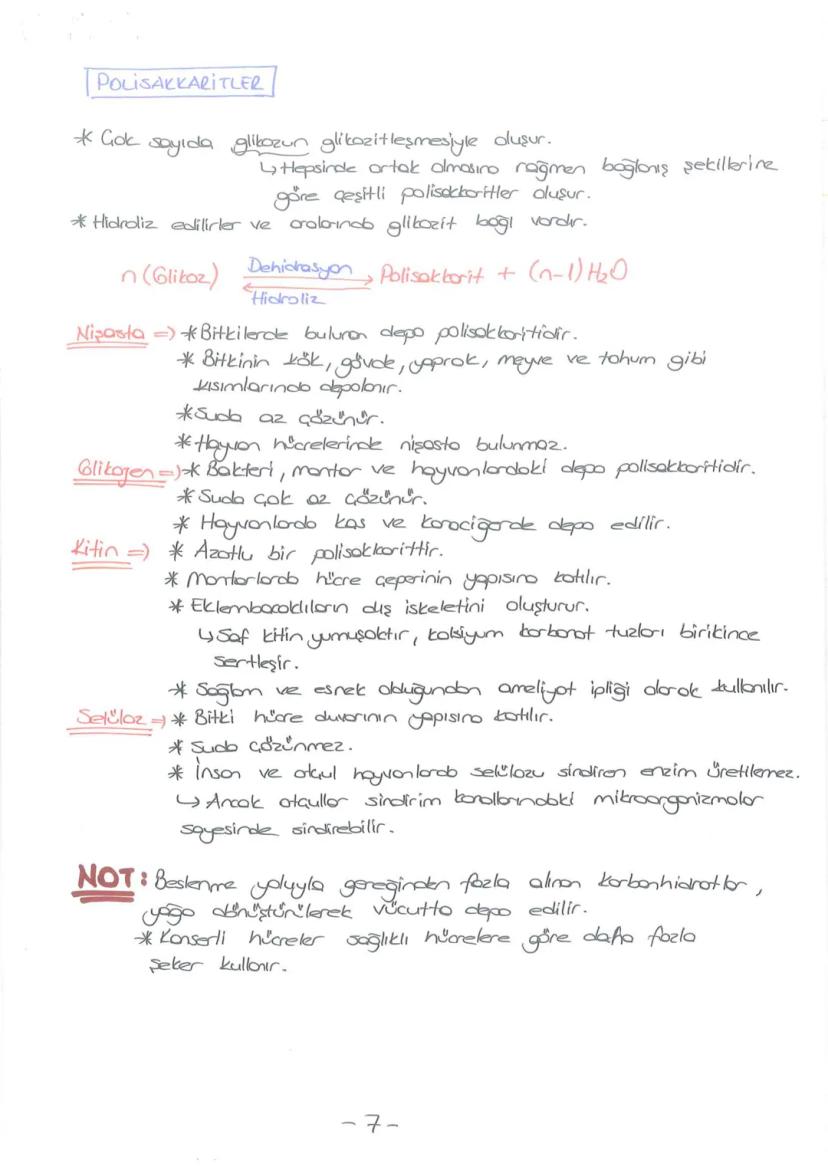 POLİSAKKARİTLER
* Çok sayıda glikozun glikozitleşmesiyle oluşur.
↳ Hepsinde ortak olmasına rağmen bağlanış şekillerine
göre çeşitli polisakkaritler oluşur.
* Hidroliz edilirler ve aralarında glikozit bağı vardır.
n (Glikoz) Dehidrasyon Polisakkarit + (n-1) H₂O
Hidroliz
Nişasta => * Bitkilerde bulunan depo polisakkaritidir.
* Bitkinin kök, gövde, yaprak, meyve ve tohum gibi
kısımlarında depolanır.
* Suda az çözünür.
* Hayvan hücrelerinde nişasta bulunmaz.
Glikojen => * Bakteri, mantar ve hayvanlardaki depo polisakkaritidir.
* Suda çok az çözünür.
* Hayvanlarda kas ve karaciğerde depo edilir.
Kitin => * Azotlu bir polisakkarittir.
* Mantarlarda hücre çeperinin yapısına katılır.
* Eklembacaklıların dış iskeletini oluşturur.
↳ Saf kitin yumuşaktır, kalsiyum karbonat tuzları birikince
sertleşir.
* Sağlam ve esnek olduğundan ameliyat ipliği olarak kullanılır.
Selüloz => * Bitki hücre duvarının yapısına katılır.
* Suda çözünmez.
* İnsan ve otçul hayvanlarda selülozu sindiren enzim üretilemez.
↳ Ancak otçullar sindirim kanallarındaki mikroorganizmalar
sayesinde sindirebilir.
NOT: Beslenme yoluyla gereğinden fazla alınan karbonhidratlar,
yağa dönüştürülerek vücutta depo edilir.
* Kanserli hücreler sağlıklı hücrelere göre daha fazla
şeker kullanır.
- 7 -